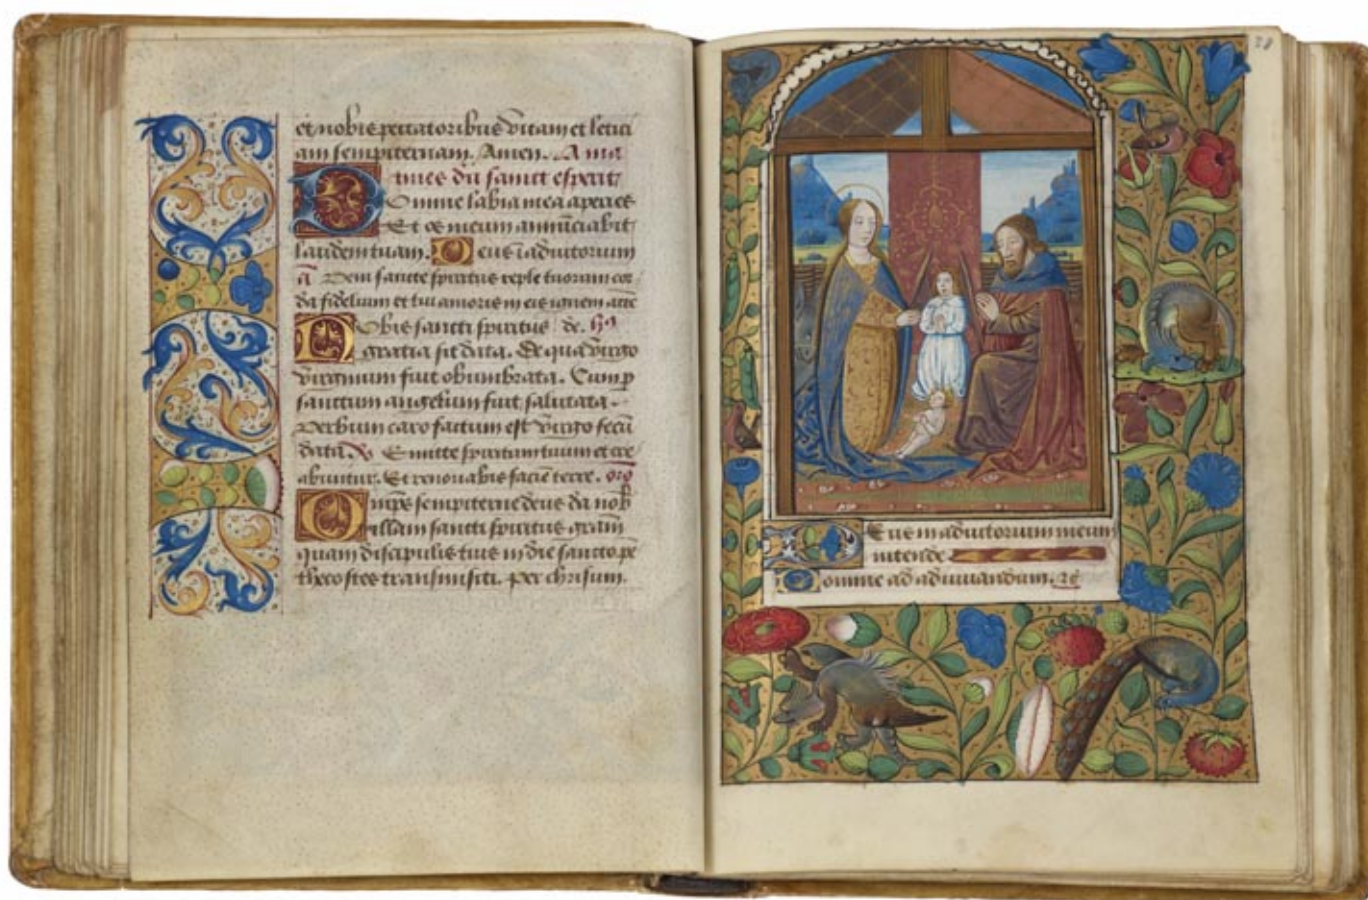 et nobis peccatoribus vitam et letici
am sempiternam. Amen. A ma
tines du sainct esperit
Domine labia mea aperies
Et os meum annunciabit
laudem tuam. Deus i adiutorium
a Veni sancte spiritus reple tuorum cor
da fidelium et tui amoris in eis ignem acce
Nobis sancti spiritus de. hỹ
gratia sit data. De qua virgo
virginum fuit obumbrata. Cum p
sanctum angelum fuit salutata.
Verbum caro factum est virgo fecũ
data. v Emitte spiritum tuum et cre
abuntur. Et renovabis faciẽ terre. oro
Omps sempiterne deus da nob
illam sancti spiritus gram
quam discipulis tuis in die sancto pe
thecostes transmisisti. per christum.
28
Deus in adiutorium meum
intende
Domine ad adiuvandum. rẽ